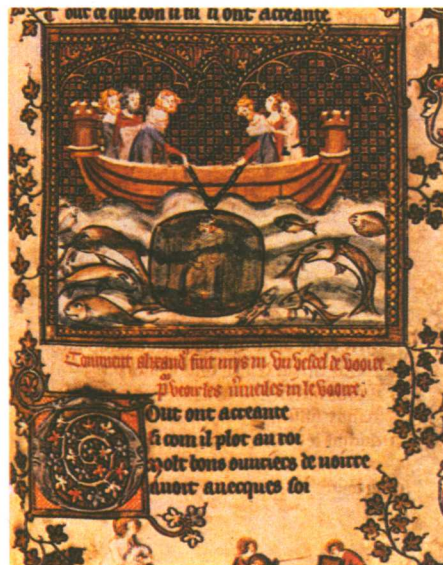 Tout ce que con li tu li ont acreante
Comment alixand' fuit mys en vn vesel de voorre
p veoir les m'ueiles en le
Out ont acreante
si com il plot au roi
molt bons ouuriers de uoirre
auoit auecques soi